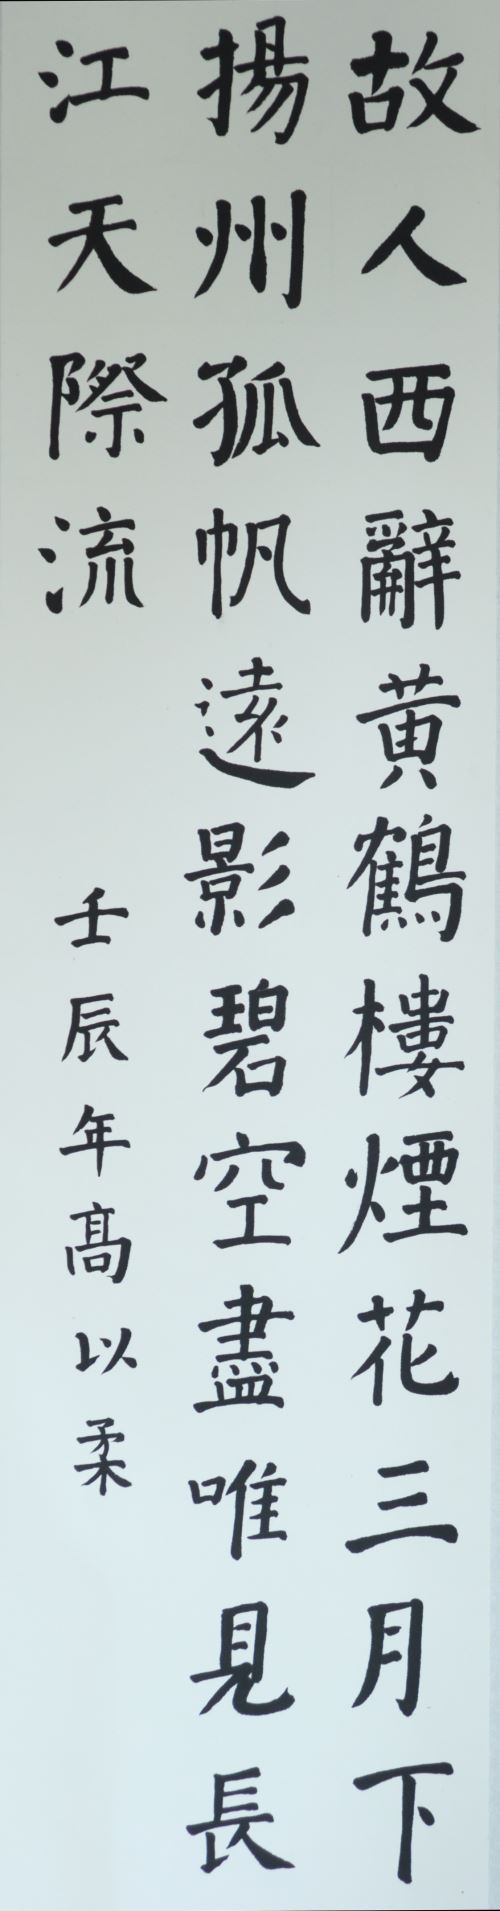 故人西辭黃鶴樓煙花三月下
揚州孤帆遠影碧空盡唯見長
江天際流
壬辰年高以柔